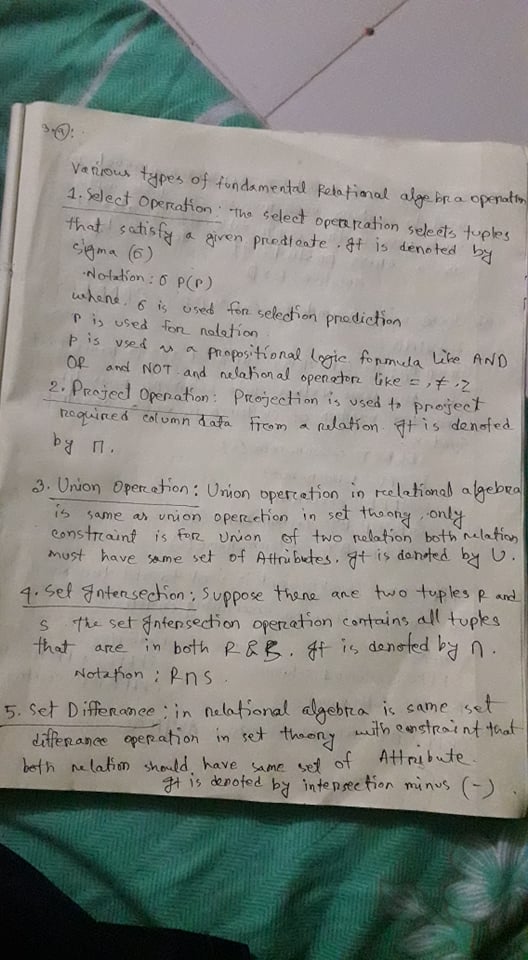 3.(a):
Various types of fundamental Relational algebra operation
1. Select Operation: The select operation selects tuples
that satisfy a given predicate. It is denoted by
sigma (σ)
Notation: σ p(r)
where. σ is used for selection prediction
r is used for relation.
p is used as a propositional logic formula like AND
OR and NOT. and relational operator like =, ≠, ≥
2. Project Operation: Projection is used to project
required column data from a relation. It is denoted
by Π.
3. Union Operation: Union operation in relational algebra
is same as union operation in set theory, only
constraint is for union of two relation both relation
must have same set of Attributes. It is denoted by U.
4. Set Intersection: Suppose there are two tuples R and
S The set Intersection operation contains all tuples
that are in both R & S. It is denoted by ∩.
Notation: R∩S.
5. Set Difference: in relational algebra is same set
difference operation in set theory with constraint that
both relation should have same set of Attribute.
It is denoted by intersection minus (-).